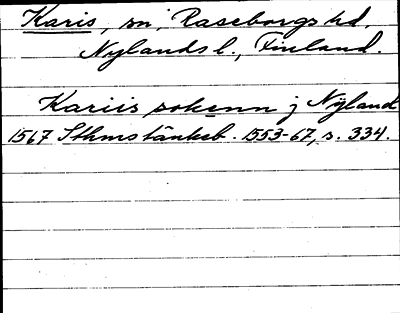 Karis, sn, Raseborgs hd.
Nylands l., Finland.
Kariis sokenn j Nyland
1567 Sthms tänkeb. 1553-67, s. 334.